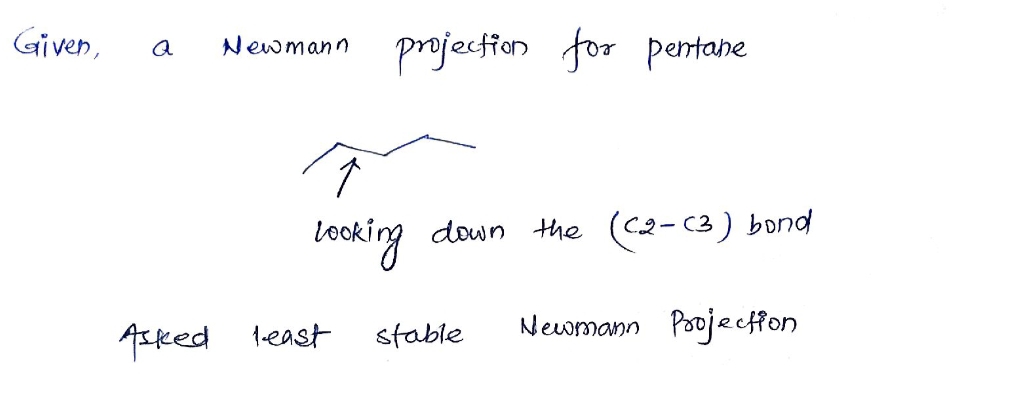 Given, a Newmann projection for pentane
looking down the (C2-C3) bond
Asked least stable Newmann Projection